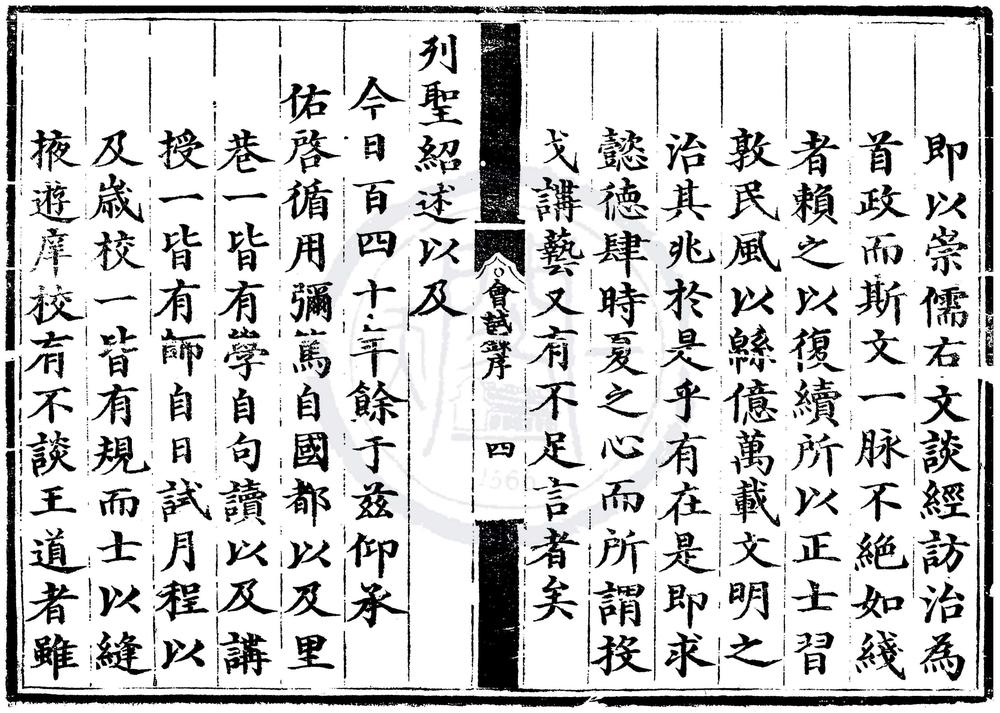 即以崇儒右文談經訪治為
首政而斯文一脉不絶如綫
者賴之以復續所以正士習
敦民風以緜億萬載文明之
治其兆於是乎有在是即求
懿德肆時夏之心而所謂投
戈講藝又有不足言者矣
會試錄序 四
列聖紹述以及
今日百四十年餘于兹仰承
佑啓循用彌篤自國都以及里
巷一皆有學自句讀以及講
授一皆有師自日試月程以
及歲校一皆有規而士以縫
掖遊庠校有不談王道者雖
1566